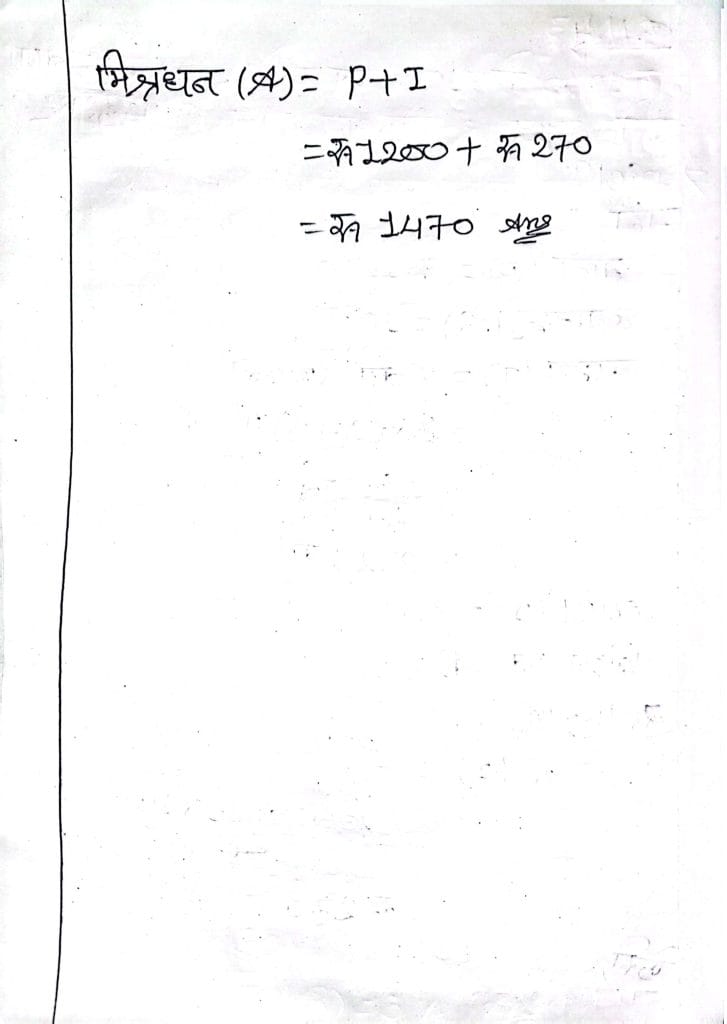 मिश्रधन (A) = P+I
= रू 1200 + रू 270
= रू 1470 Ans